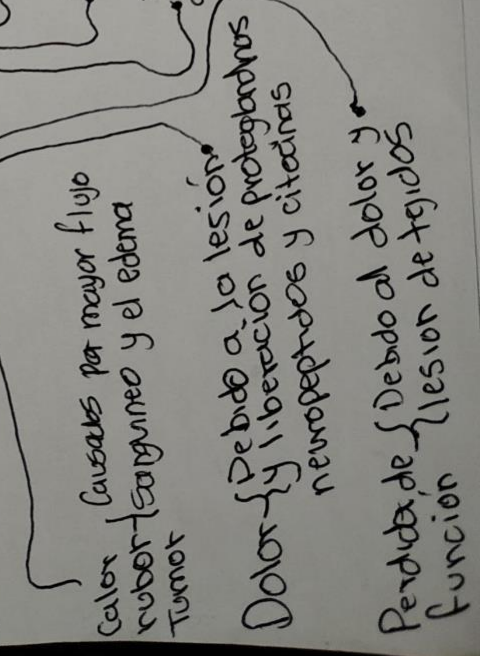 Calor
rubor { Causales por mayor flujo
Tumor sanguineo y el edema
Dolor { Debido a la lesión
y liberación de protaglandinas
neuropeptidos y citocinas
Perdida de { Debido al dolor y
función lesion de tejidos